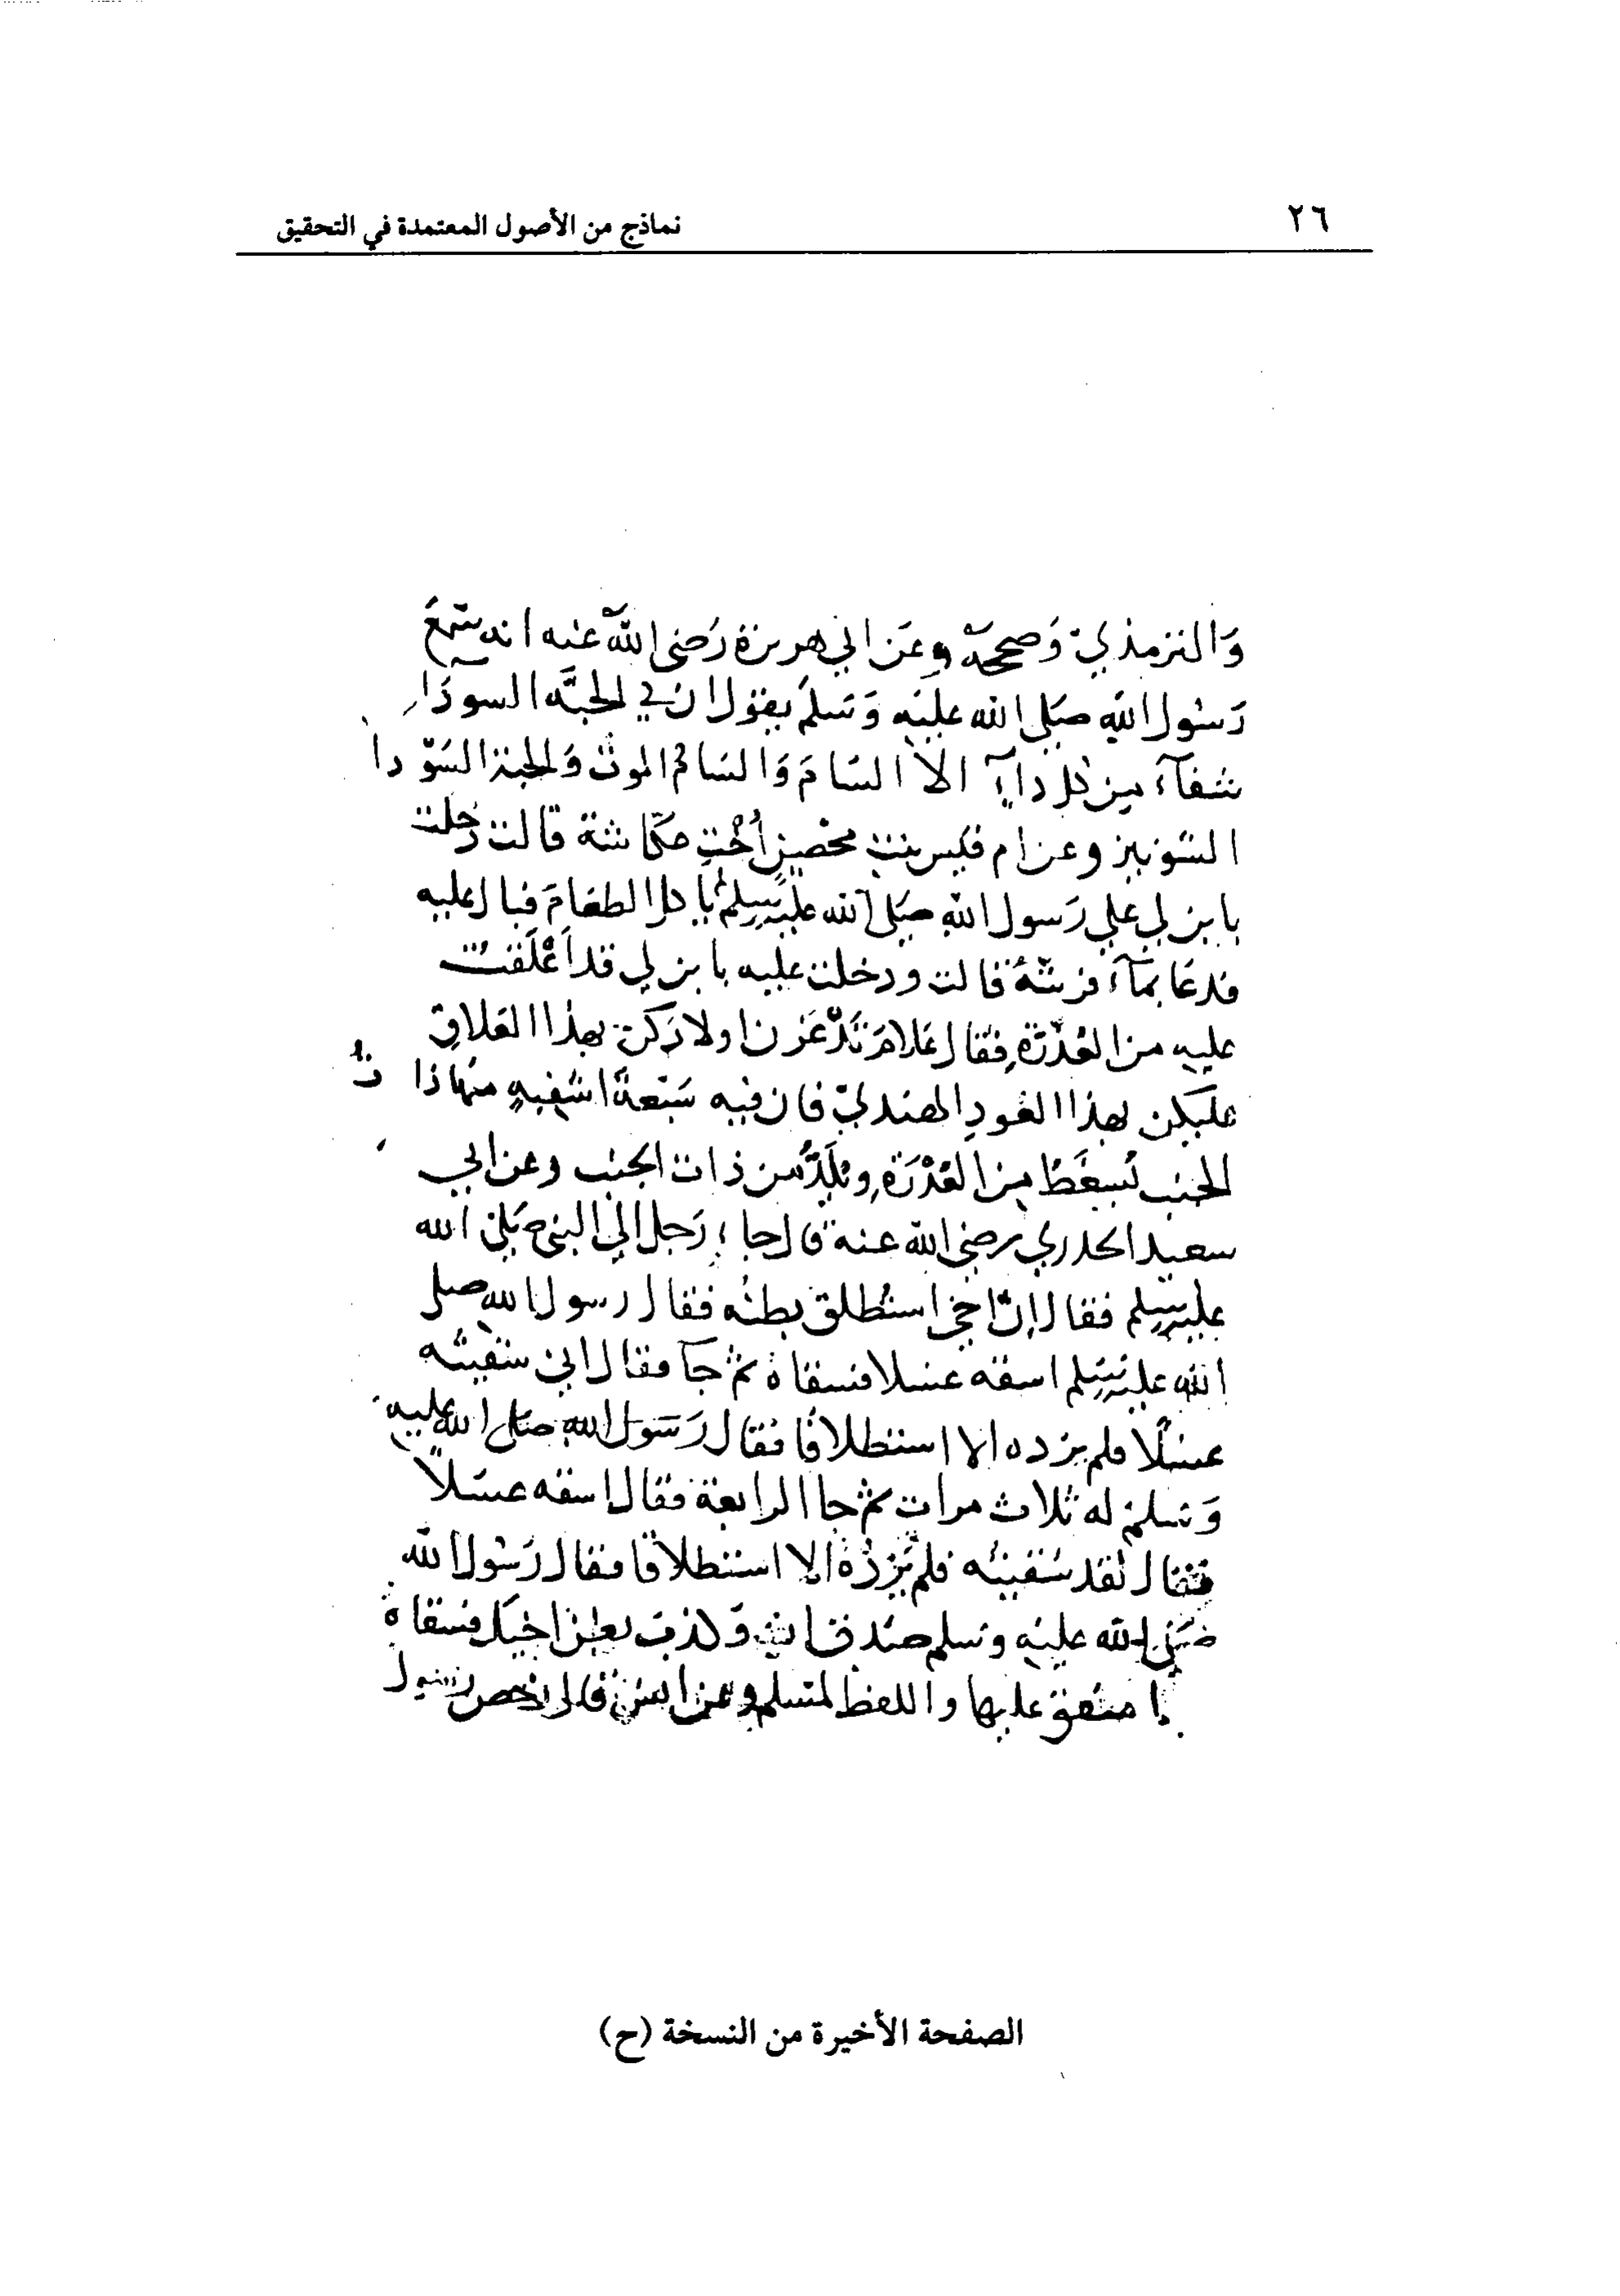 ٢٦
نماذج من الأصول المعتمدة في التحقيق
وَالترمذيّ وَصححهّ وعَن ابي هريرة رَضى اللهُ عنه انه سَمعَ
رَسُول اللهِ صَلى الله عليه وَسَلمَ يقول ان في الحبَّه السودَاء
شفآءً مِن كل داءٍ الا السّامَ وَالسّام الموت وَالحبة السّوّدا
الشونيز وعن ام قيس بنت محْصِنٍ أخْتِ عكّاشة قالت دَخلت
بابن لي على رَسول اللهِ صَلى الله عليه وسلم لم ياكل الطعَامَ فبال عليه
فدعَا بمَآءٍ فرشّهُ قالت ودخلت عليه بابن لي قد أعْلَقتُ
عليه من العُذْرَةِ فقال عَلامَ تَدْغَرْن اولادَكن بهذا العَلاقِ
عليكن بهذا العُودِ الهنديّ فان فيه سَبْعةَ اشفيهٍ منها ذاتُ
الجنب يُسعَطُ مِن العُذْرَةِ ويُلَدُّ من ذات الجنب وعن ابي
سعيد الخدري رضي الله عنه قال جاء رَجل الى النبي صَلى الله
عليه وسلم فقال اِنّ اخي استُطلق بطنُه فقال رسول الله صلى
الله عليه وسلم اسقه عسلا فسقاهُ ثم جآ فقال اني سقيتُه
عسَلًا فلم يزده الا استطلاقًا فقال رَسَول اللهِ صَلى الله عليه
وَسَلم له ثلاث مرات ثم جا الرابعة فقال اسقه عسَلاً
فقال لقد سَقيتُه فلم يَزِدْهُ الا استطلاقا فقال رَسُول الله
صَلى الله عليه وسلم صَدق الله وَكذبَ بطن اخيك فسقاهُ
متفق عليها واللفظ لمسلم وعن انس قال رخص رسول
الصفحة الأخيرة من النسخة (ح)